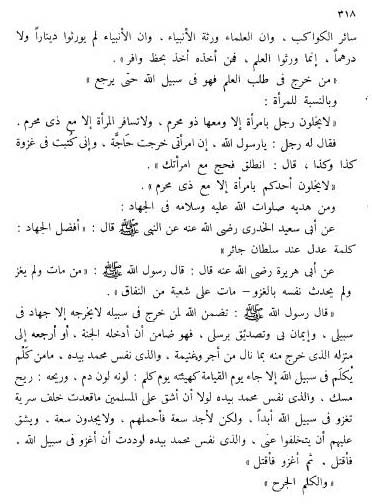 ٣١٨
سائر الكواكب ، وان العلماء ورثة الأنبياء ، وان الأنبياء لم يورثوا ديناراً ولا
درهماً ، إنما ورثوا العلم ، فمن أخذه أخذ بحظ وافر» .
«من خرج فى طلب العلم فهو فى سبيل الله حتى يرجع »
وبالنسبة للمرأة :
«لايخلون رجل بامرأة إلا ومعها ذو محرم ، ولاتسافر المرأة إلا مع ذى محرم .
فقال له رجل : يارسول الله ، إن امرأتى خرجت حَاجَّة ، وإنى كتبت فى غزوة
كذا وكذا ، قال : انطلق فحج مع امرأتك» .
«لايخلون أحدكم بامرأة إلا مع ذى محرم » .
ومن هديه صلوات الله عليه وسلامه فى الجهاد :
عن أبى سعيد الخدرى رضى الله عنه عن النبى ﷺ قال : « أفضل الجهاد :
كلمة عدل عند سلطان جائر»
عن أبى هريرة رضى الله عنه قال : قال رسول الله ﷺ : «من مات ولم يغز
ولم يحدث نفسه بالغزو – مات على شعبة من النفاق» .
«قال رسول الله ﷺ : تضمن الله لمن خرج فى سبيله لايخرجه إلا جهاد فى
سبيلى ، وإيمان بى وتصديق برسلى ، فهو ضامن أن أدخله الجنة . أو أرجعه إلى
منزله الذى خرج منه بما نال من أجر وغنيمة . والذى نفس محمد بيده ، مامن كَلْم
يُكلَم فى سبيل الله إلا جاء يوم القيامة كهيئته يوم كلم : لونه لون دم ، وريحه : ريح
مسك . والذى نفس محمد بيده لولا أن أشق على المسلمين ماقعدت خلف سرية
تغزو فى سبيل الله أبداً ، ولكن لأجد سعة فأحملهم ، ولايجدون سعة ، ويشق
عليهم أن يتخلفوا عنى ، والذى نفس محمد بيده لوددت أن أغزو فى سبيل الله .
فأقتل . ثم أغزو فأقتل»
«والكلم الجرح »